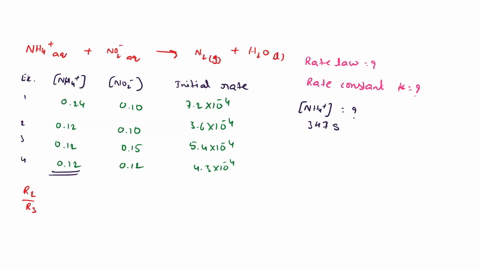 NH₄⁺ aq + NO₂⁻ aq → N₂(g) + H₂O(l)
Rate law = ?
Rate constant k = ?
[NH₄⁺] = ?
347 s
Ex. [NH₄⁺] [NO₂⁻] Initial rate
1 0.24 0.10 7.2×10⁻⁴
2 0.12 0.10 3.6×10⁻⁴
3 0.12 0.15 5.4×10⁻⁴
4 0.12 0.12 4.3×10⁻⁴
R₂
R₃